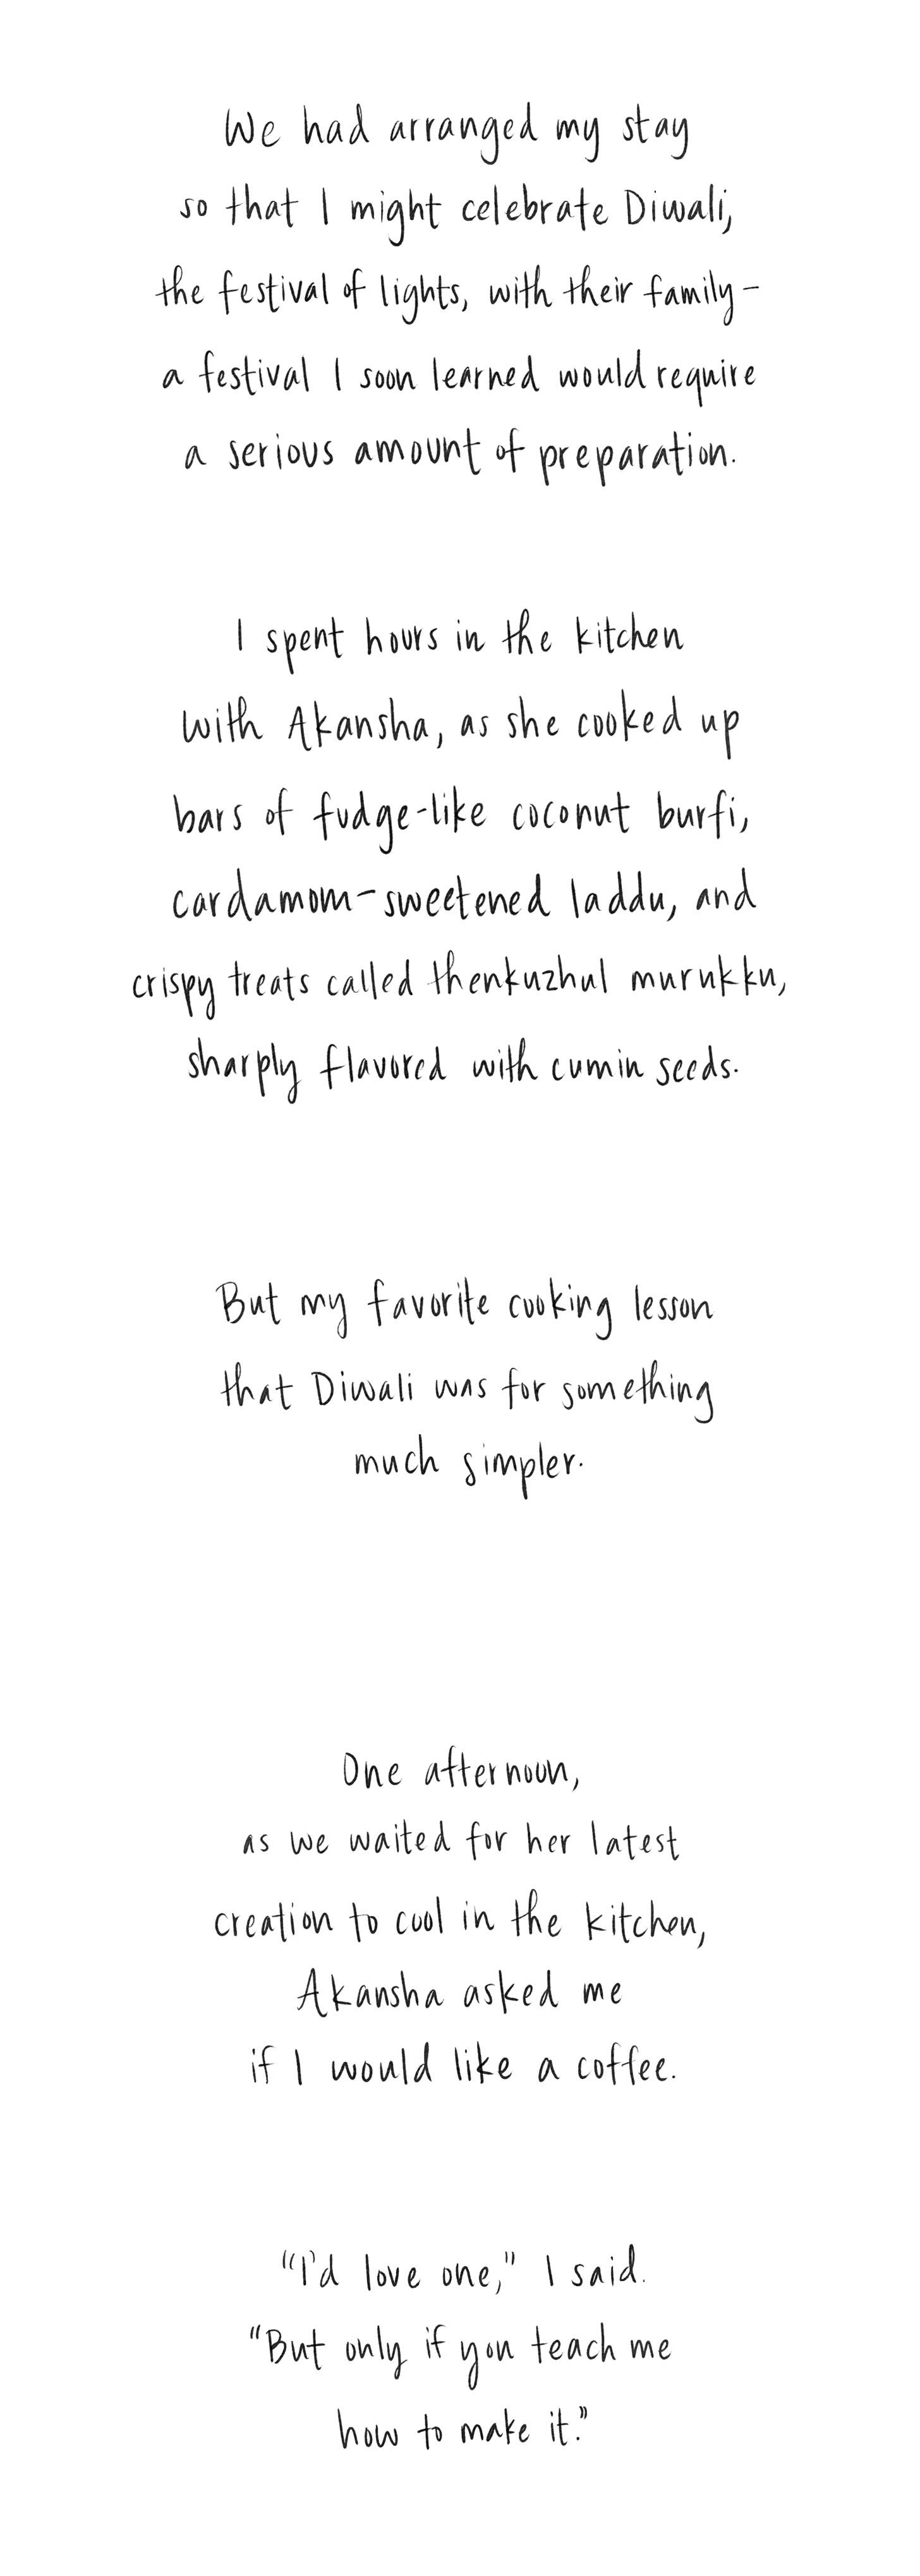 We had arranged my stay
so that I might celebrate Diwali,
the festival of lights, with their family-
a festival I soon learned would require
a serious amount of preparation.
I spent hours in the kitchen
with Akansha, as she cooked up
bars of fudge-like coconut burfi,
cardamom-sweetened laddu, and
crispy treats called thenkuzhul murukku,
sharply flavored with cumin seeds.
But my favorite cooking lesson
that Diwali was for something
much simpler.
One afternoon,
as we waited for her latest
creation to cool in the kitchen,
Akansha asked me
if I would like a coffee.
"I'd love one," I said.
"But only if you teach me
how to make it."